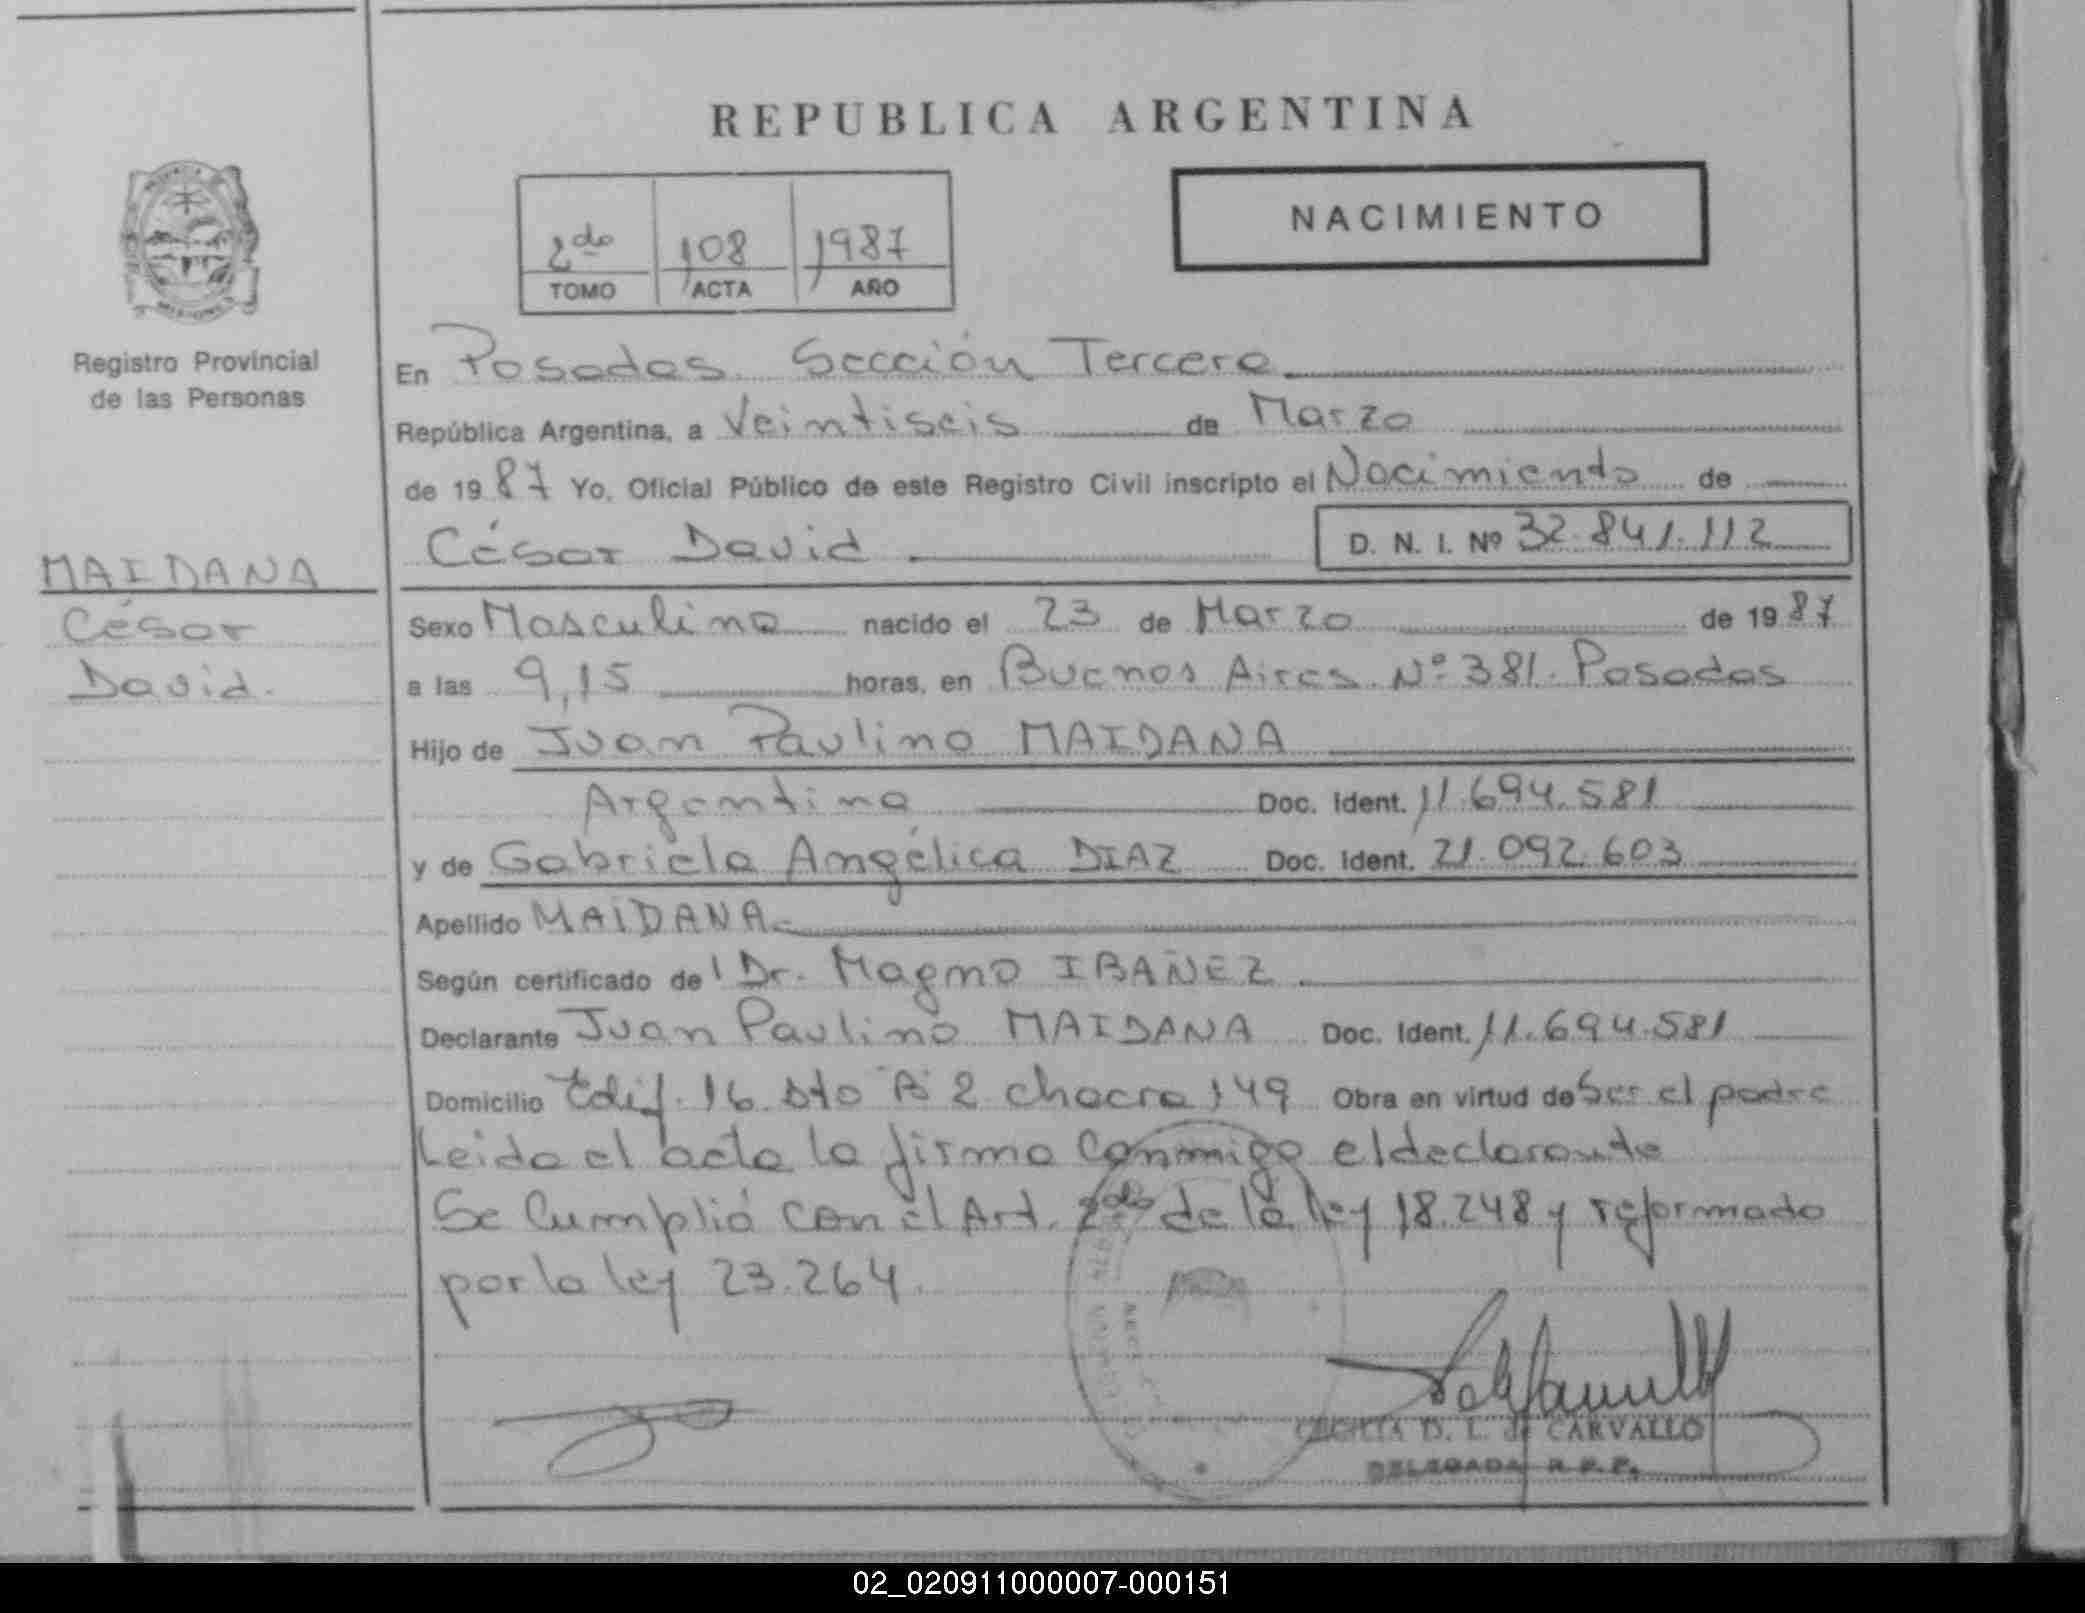 REPUBLICA ARGENTINA
2do 108 1987
TOMO ACTA AÑO
NACIMIENTO
Registro Provincial
de las Personas
MAIDANA
César
David.
En Posadas Sección Tercera
República Argentina, a Veintiseis de Marzo
de 1987 Yo, Oficial Público de este Registro Civil inscripto el Nacimiento de
César David D. N. I. Nº 32.841.112
Sexo Masculino nacido el 23 de Marzo de 1987
a las 9,15 horas, en Buenos Aires Nº 381. Posadas
Hijo de Juan Paulino MAIDANA
Argentino Doc. Ident. 11.694.581
y de Gabriela Angélica DIAZ Doc. Ident. 21.092.603
Apellido MAIDANA
Según certificado de Dr. Magno IBAÑEZ
Declarante Juan Paulino MAIDANA Doc. Ident. 11.694.581
Domicilio Edif. 16 Dto "B" 2 chacra 149 Obra en virtud de Ser el padre
Leida el acta la firma conmigo el declarante
Se Cumplió con el Art. 2do de la ley 18.248 y reformado
por la ley 23.264.
CECILIA D. L. de CARVALLO
DELEGADA R. P. P.
02_020911000007-000151